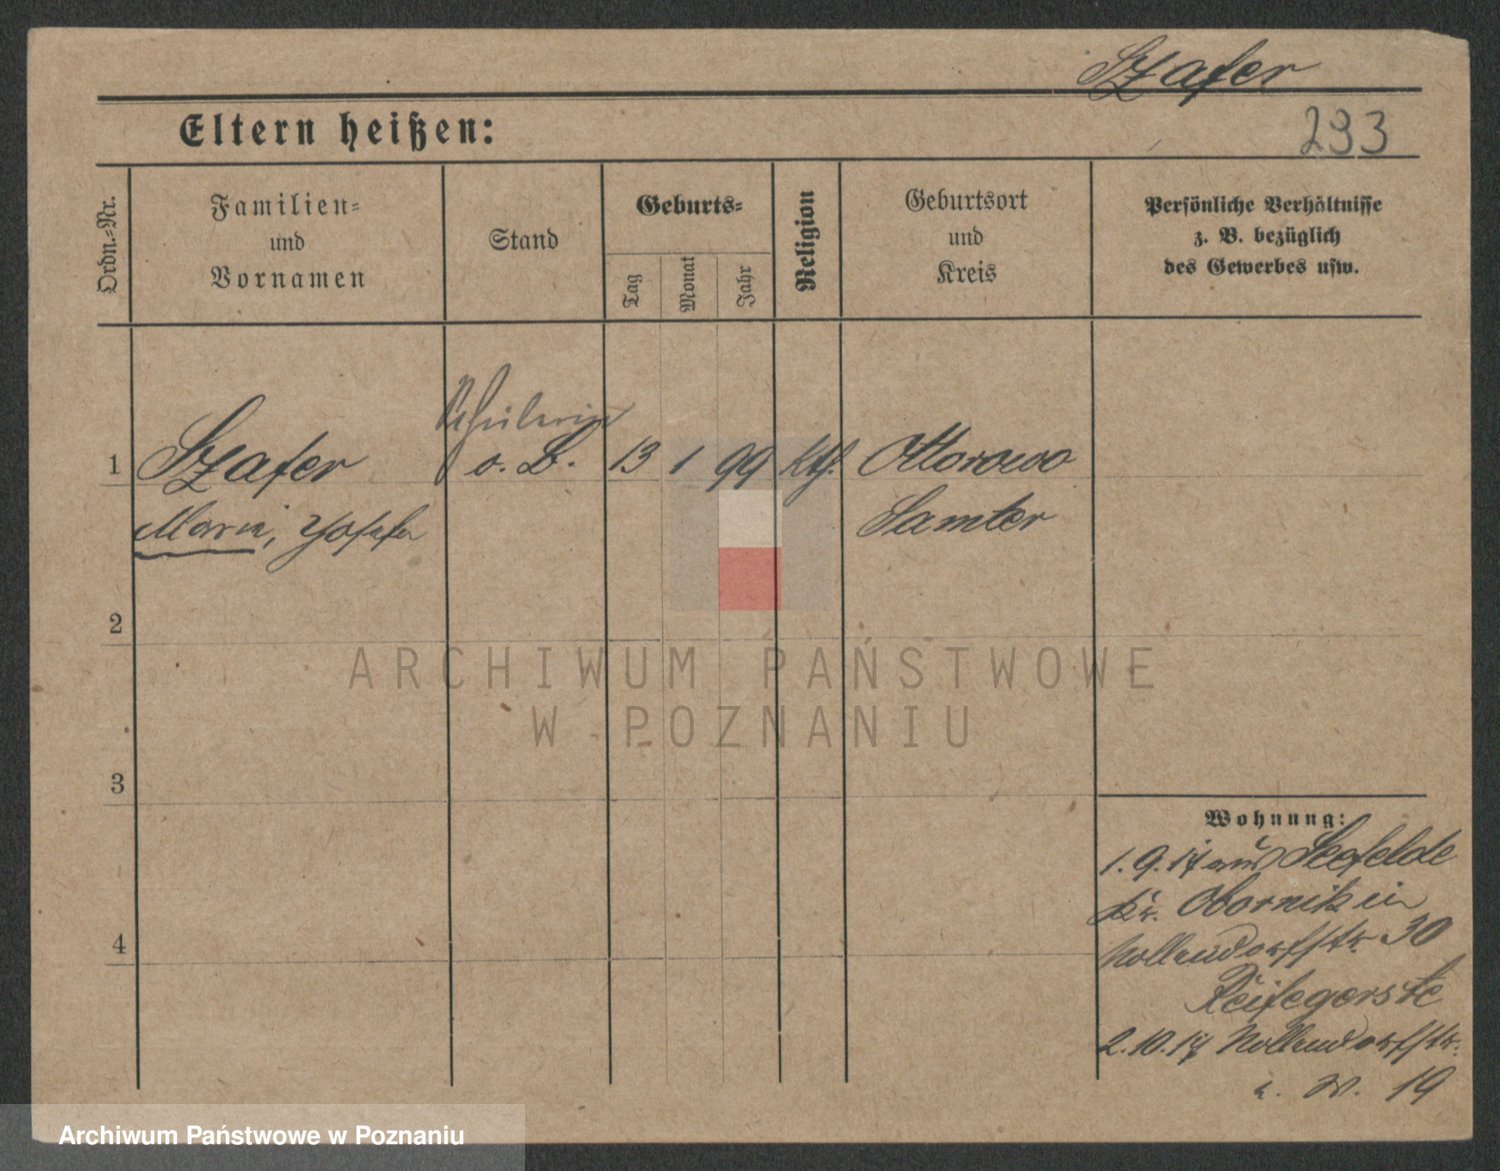 Szafer
Eltern heißen:
293
Ordn.-Nr.
Familien-
und
Vornamen
Stand
Geburts-
Tag
Monat
Jahr
Religion
Geburtsort
und
Kreis
Persönliche Verhältnisse
z. B. bezüglich
des Gewerbes usw.
Schülerin
1 Szafer o. B. 13 1 99 kth. Ottorowo
Marie, Josefa Samter
2
3
4
Wohnung:
1.9.17 aus Seefelde
Kr. Obornik in
Nollendorfstr. 30
2.10.17 Nollendorfstr.
19
ARCHIWUM PAŃSTWOWE
W POZNANIU
Archiwum Państwowe w Poznaniu